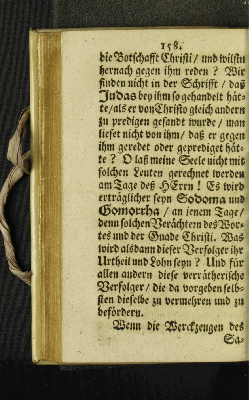 158.
die Botschafft Christi / und wilstu
hernach gegen ihm reden? Wir
finden nicht in der Schrifft / daß
Judas bey ihm so gehandelt hät-
te / als er von Christo gleich andern
zu predigen gesandt wurde / man
lieset nicht von ihm / daß er gegen
ihm geredet oder geprediget hät-
te? O laß meine Seele nicht mit
solchen Leuten gerechnet werden
am Tage deß HErrn! Es wird
erträglicher seyn Sodoma und
Gomorrha / an jenem Tage /
denn solchen Verächtern des Wor-
tes und der Gnade Christi. Was
wird alsdann dieser Verfolger ihr
Urtheil und Lohn seyn? Und für
allen andern diese verrätherische
Verfolger / die da vorgeben selb-
sten dieselbe zu vermehren und zu
befördern.
Wenn die Werckzeugen des
Sa-